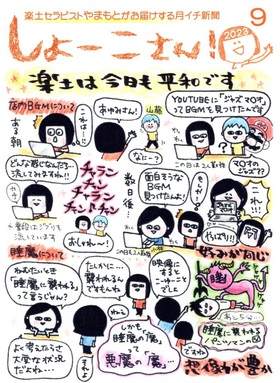 楽土セラピストやまもとがお届けする月イチ新聞
しょーこさん！
2023
9
楽土は今日も平和です
店内BGMについて
ある朝
これは…！
あゆみさん！
山藤
なにー？
YOUTUBEに「ジャズ マリオ」
ってBGMを見つけたんです
どんな感じなんだろー
流してみますね!!
チャラン
チャン
チャラーン
チャン
チャンチャン
※普段はジブリを
流しています
おしゃれ〜！
数日後…
この日は2人勤務
面白そうな
BGM
見つけたんよ！
マリオの
ジャズ??
やっぱり!!
好みが同じ
睡魔について
ねむたいとき
睡魔に襲われる
って言うじゃん？
たしかに…
襲われるん
ですもんね
映像に
すると
こーゆーこと
でしょ
睡
魔
よく考えたらさ
大変な状況
だよね…
しかも
睡魔の「魔」って
悪魔の「魔」…
睡魔に襲われる
想像力が豊か